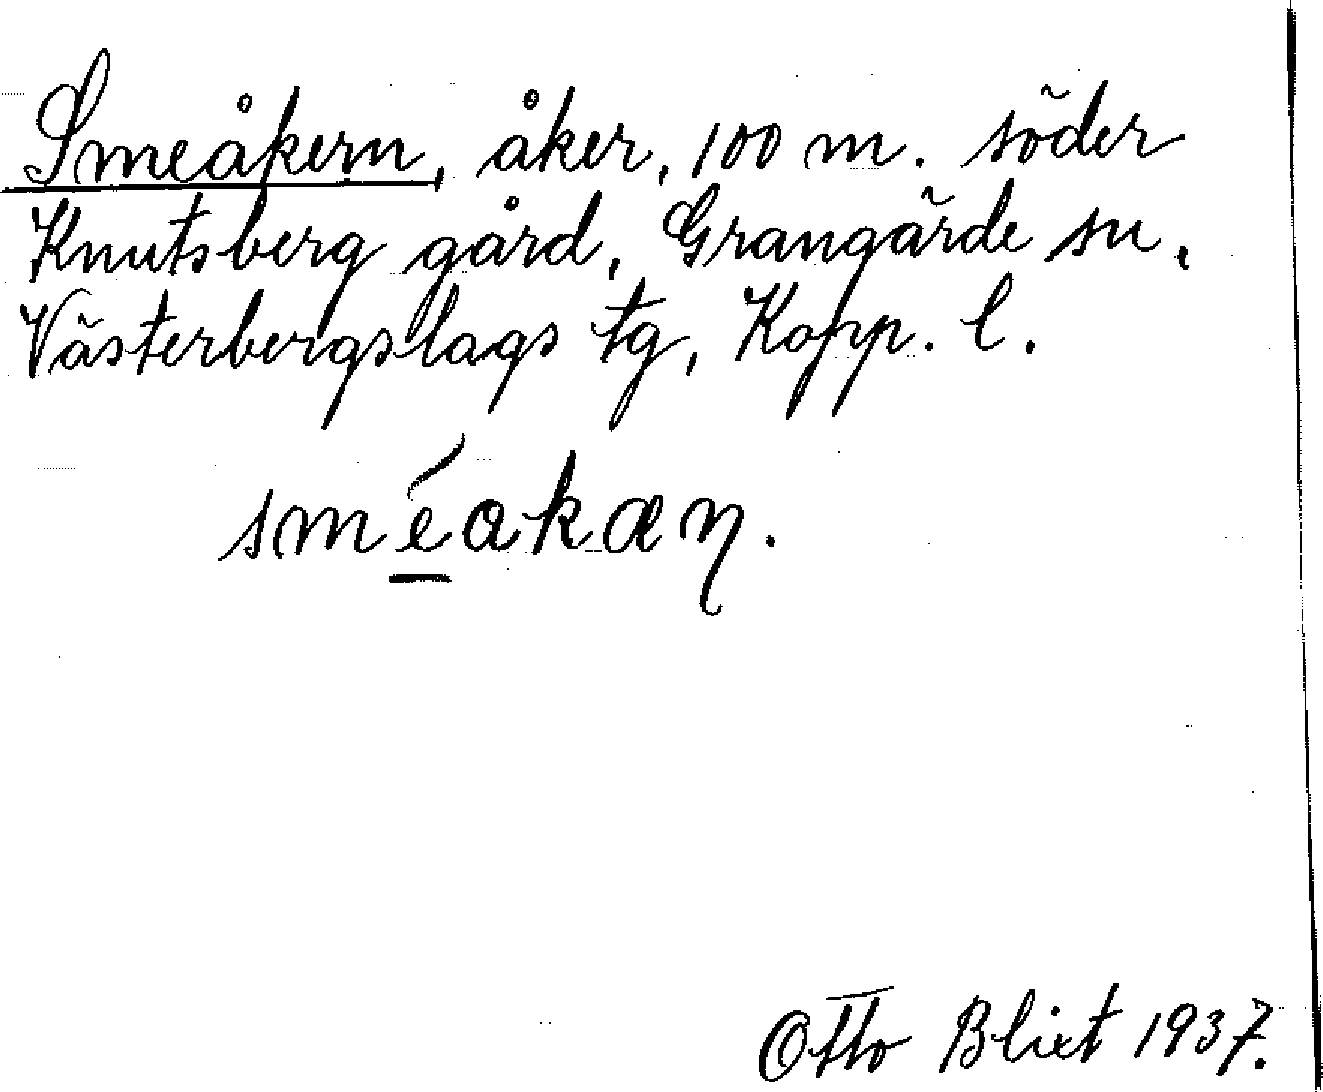 Smeåkern, åker, 100 m. söder
Knutsberg gård, Grangärde sn,
Västerbergslags tg, Kopp. l.
sméakaη.
Otto Blixt 1937.